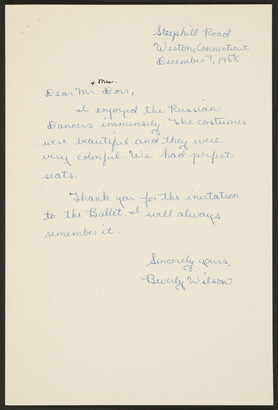 Steephill Road
Weston, Connecticut
December 7, 1958
+ Mrs.
Dear Mr. Dorr,
I enjoyed the Russian
Dancers immensely. The costumes
were beautiful and they were
very colorful. We had perfect
seats.
Thank you for the invitation
to the Ballet. I will always
remember it.
Sincerely yours,
Beverly Wilson